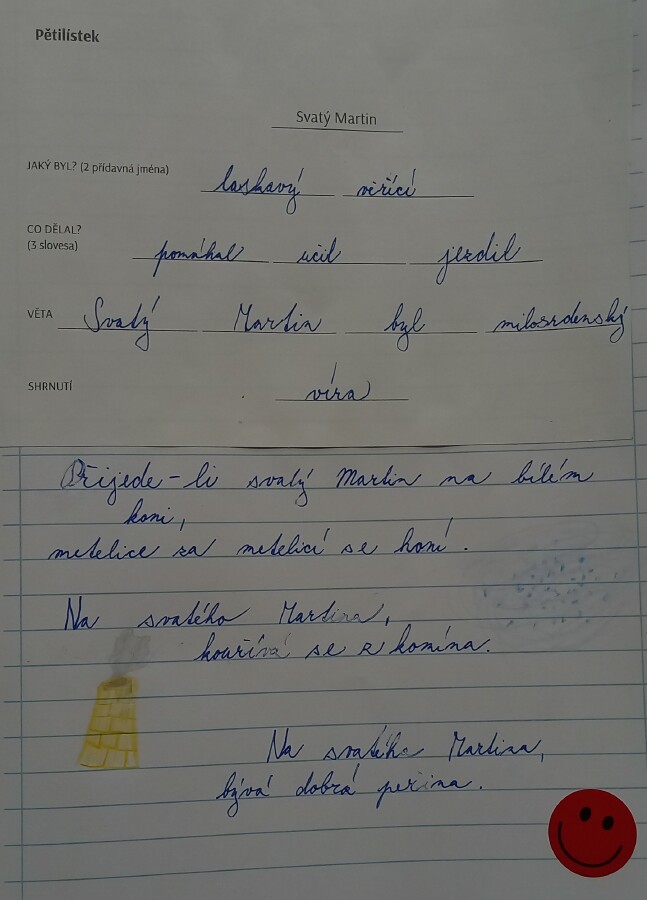 Pětilístek
Svatý Martin
JAKÝ BYL? (2 přídavná jména) laskavý věřící
CO DĚLAL?
(3 slovesa) pomáhal učil jezdil
VĚTA Svatý Martin byl milosrdenský
SHRNUTÍ víra
Přijede-li svatý Martin na bílém
koni,
metelice za metelicí se honí.
Na svatého Martina,
kouřívá se z komína.
Na svatého Martina,
bývá dobrá peřina.